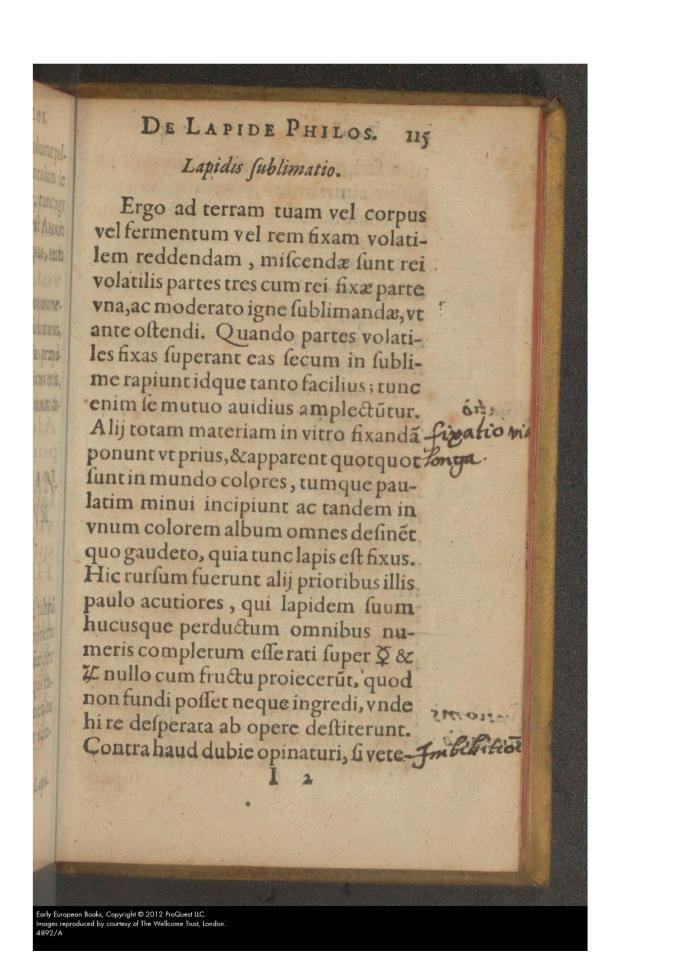 DE LAPIDE PHILOS. 115
Lapidis ſublimatio.
Ergo ad terram tuam vel corpus
vel fermentum vel rem fixam volati-
lem reddendam, miſcendæ ſunt rei
volatilis partes tres cum rei fixæ parte
vna, ac moderato igne ſublimandæ, vt
ante oſtendi. Quando partes volati-
les fixas ſuperant eas ſecum in ſubli-
me rapiunt idque tanto facilius; tunc
enim ſe mutuo auidius amplectūtur.
Alij totam materiam in vitro fixandā
fixatio
ponunt vt prius, & apparent quotquot
longa.
ſunt in mundo colores, tumque pau-
latim minui incipiunt ac tandem in
vnum colorem album omnes deſinēt
quo gaudeto, quia tunc lapis eſt fixus.
Hic rurſum fuerunt alij prioribus illis
paulo acutiores, qui lapidem ſuum
hucusque perductum omnibus nu-
meris completum eſſe rati ſuper ☿ &
♃ nullo cum fructu proiecerūt, quod
non fundi poſſet neque ingredi, vnde
hi re deſperata ab opere deſtiterunt.
Contra haud dubie opinaturi, ſi vete-
I 2
Early European Books, Copyright © 2012 ProQuest LLC.
Images reproduced by courtesy of The Wellcome Trust, London.
4892/A